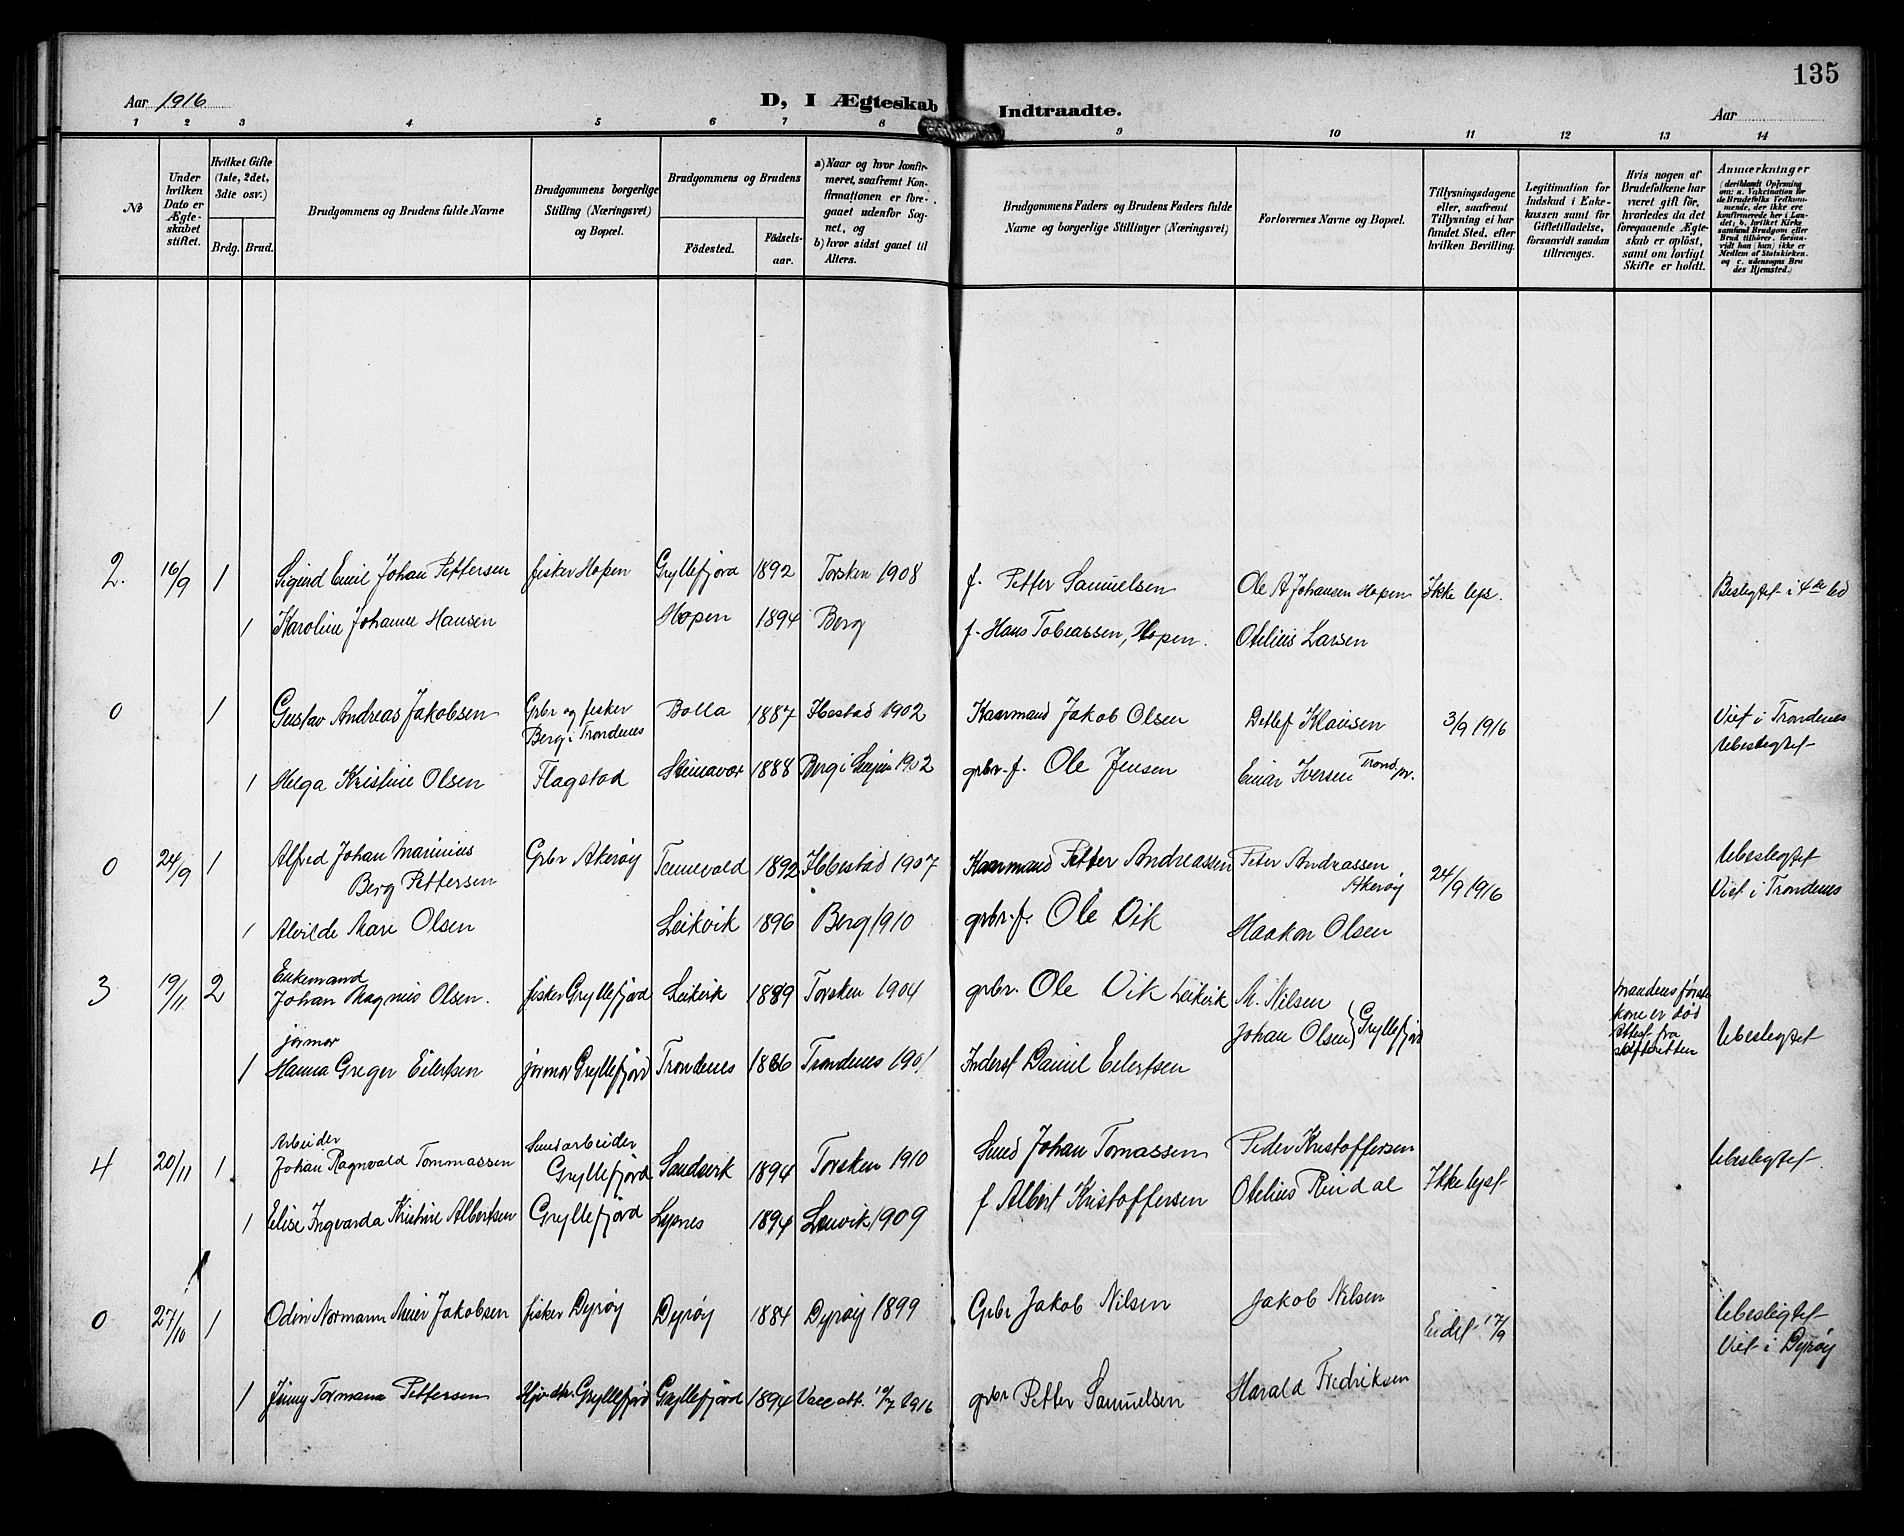 135
Aar 1916
D, I Ægteskab Indtraadte.
Aar
1 2 3 4 5 6 7 8 9 10 11 12 13 14
№
Under hvilken Dato er Ægteskabet stiftet.
Hvilket Gifte (1ste, 2det, 3die osv.)
Brdg. Brud.
Brudgommens og Brudens fulde Navne
Brudgommens borgerlige Stilling (Næringsvei) og Bopæl.
Brudgommens og Brudens
Födested. Födselsaar.
a) Naar og hvor konfirmeret, saafremt Konfirmationen er foregaaet udenfor Sognet, og
b) hvor sidst gaaet til Alters.
Brudgommens Faders og Brudens Faders fulde Navne og borgerlige Stillinger (Næringsvei)
Forlovernes Navne og Bopæl.
Tillysningsdagene eller, saafremt Tillysning ei har fundet Sted, efter hvilken Bevilling.
Legitimation for Indskud i Enkekassen samt for Giftetilladelse, forsaavidt saadan tiltrænges.
Hvis nogen af Brudefolkene har været gift för, hvorledes da det foregaaende Ægteskab er oplöst, samt om lovligt Skifte er holdt.
Anmærkninger
(deriblandt Oplysning om: a. Vakcination for de Brudefolks Vedkommende, der ikke ere konfirmerede her i Landet; b. hvilket Kirkesamfund Brudgom eller Brud tilhörer, forsaavidt han (hun) ikke er Medlem af Statskirken, og c. udensogns Brudes Hjemsted.)
2. 16/9 1 Sigurd Emil Johan Pettersen fisker Hopen Gryllefjord 1892 Torsken 1908 f. Petter Samuelsen Ole A Johansen Hopen Ikke lys. Beslegtet i 4de led
1 Karoline Johanne Hansen Hopen 1894 Berg f. Hans Tobiassen, Hopen. Otelius Larsen
0 1 Gustav Andreas Jakobsen Grbr og fisker Berg i Trondenes Bolla 1887 Ibestad 1902 Kaarmand Jakob Olsen Detlef Klausen 3/9 1916 Viet i Trondenes Ubeslegtet
1 Helga Kristine Olsen Flagstad 1888 Berg i Senjen 1902 grbr. f. Ole Jensen Einar Iversen Trond. pr.
0 24/9 1 Alfred Johan Marinius Berg Pettersen Grbr Akerøy Tennevold 1892 Ibbestad 1907 Kaarmand Petter Andreassen Peter Andrassen Akerøy 24/9 1916 Ubeslegtet Viet i Trondenes
1 Alvilde Mare Olsen Leikvik 1896 Berg 1910 grbr. f. Ole Vik Haakon Olsen
3 19/11 2 Enkemand Johan Magnus Olsen. fisker Gryllefjord Leikvik 1889 Torsken 1904 grbr. Ole Vik Leikvik M. Nilsen Johan Olsen } Gryllefjord mandens første kone er død attest fra skifteretten Ubeslegtet
1 jormor Hanna Greger Eilertsen jormor Gryllefjord Trondenes 1886 Trondenes 1901 Inderst Daniel Eilertsen
4 20/11 1 Arbeider Johan Ragnvald Tommassen Gryllefjord Sandvik 1894 Torsken 1910 Smed Johan Tomassen Peder Kristoffersen Ikke lyst Ubeslegtet.
1 Elise Ingvarda Kristine Albertsen Gryllefjord Lysnes 1894 Lenvik 1909 f Albert Kristoffersen Otelius Rindal
0 27/10 1 Odin Normann Meier Jakobsen fisker Dyrøy Dyrøy 1884 Dyrøy 1899 Grbr Jakob Nilsen Jakob Nilsen 17/9 Ubeslegtet Viet i Dyrøy
1 Jenny Tormana Pettersen Gryllefjord Gryllefjord 1894 Vacc att. 10/7 1916 grbr Petter Samuelsen Harald Fredriksen